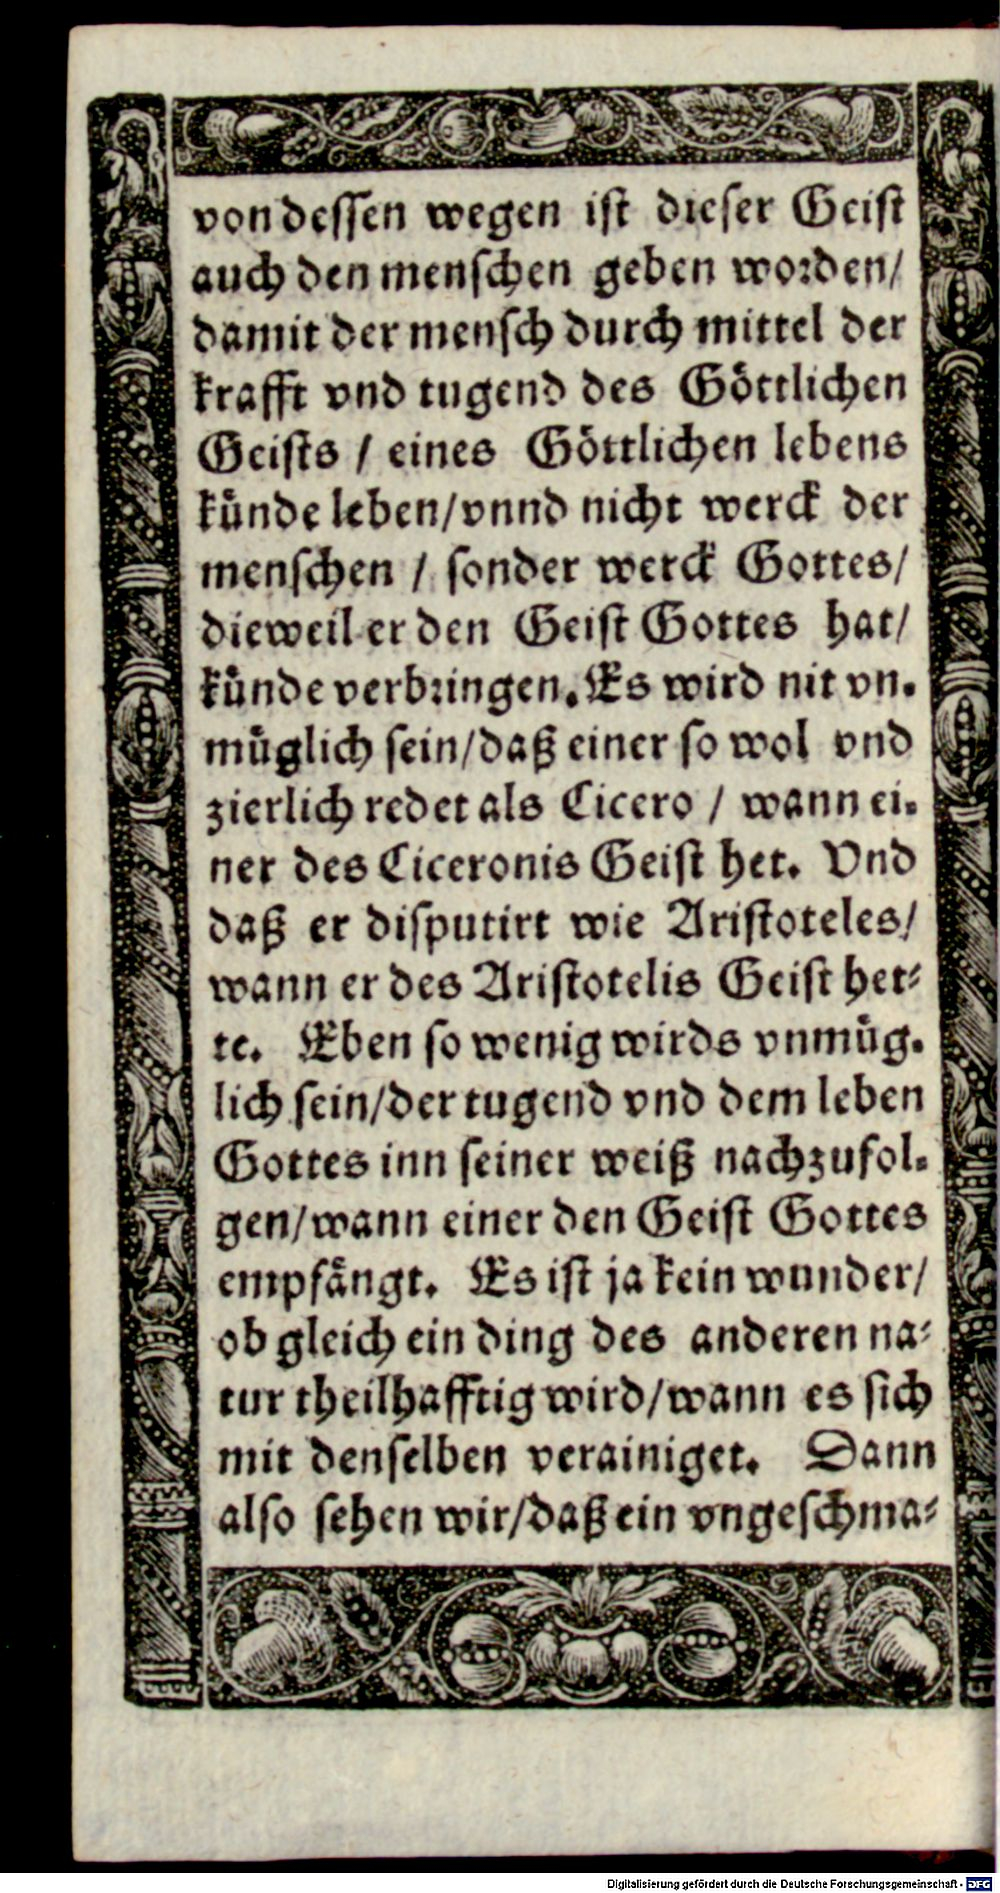 von dessen wegen ist dieser Geist
auch den menschen geben worden/
damit der mensch durch mittel der
krafft vnd tugend des Göttlichen
Geists / eines Göttlichen lebens
künde leben/vnnd nicht werck der
menschen / sonder werck Gottes/
dieweil er den Geist Gottes hat/
künde verbringen. Es wird nit vn-
müglich sein/daß einer so wol vnd
zierlich redet als Cicero / wann ei-
ner des Ciceronis Geist het. Vnd
daß er disputirt wie Aristoteles/
wann er des Aristotelis Geist het-
te. Eben so wenig wirds vnmüg-
lich sein/der tugend vnd dem leben
Gottes inn seiner weiß nachzufol-
gen/wann einer den Geist Gottes
empfängt. Es ist ja kein wunder/
ob gleich ein ding des anderen na-
tur theilhafftig wird/wann es sich
mit denselben verainiget. Dann
also sehen wir/daß ein vngeschma-
Digitalisierung gefördert durch die Deutsche Forschungsgemeinschaft - DFG